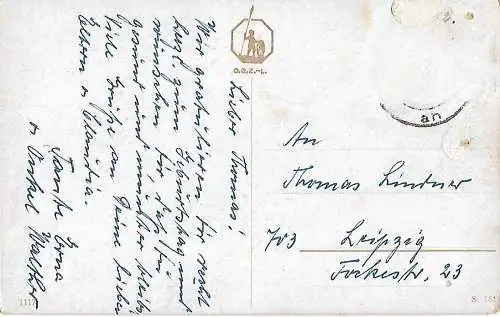 Lieber Thomas!
Wir gratulieren Dir recht
herzl. zum Geburtstag und
wünschen Dir, daß Du
gesund und munter bleibst.
Viele Grüße an Deine lieben
Eltern u. Claudia.
Tante Erna
u. Onkel Walther
O.G.Z.-L.
an
An
Thomas Lindner
703 Leipzig
Fockestr. 23
1117